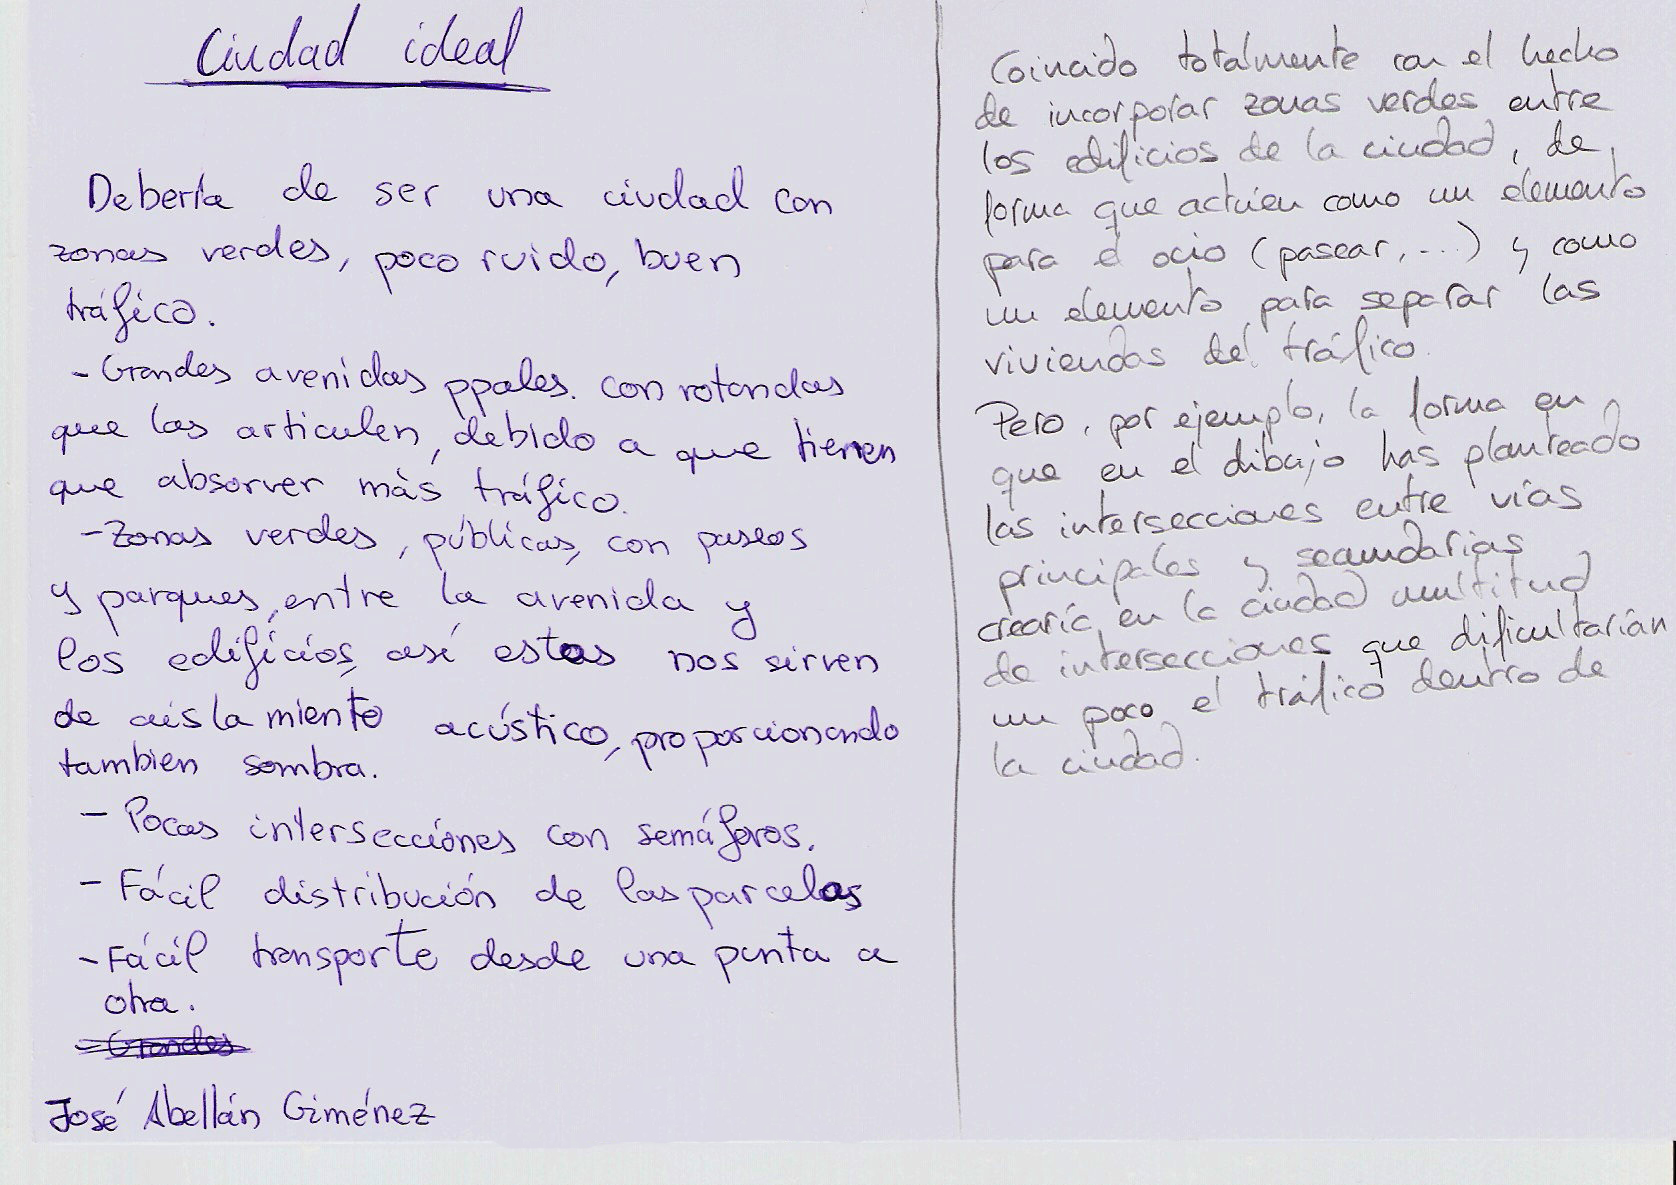 Ciudad ideal
Debería de ser una ciudad con
zonas verdes, poco ruido, buen
tráfico.
- Grandes avenidas ppales. con rotondas
que las articulen, debido a que tienen
que absorver más tráfico.
- Zonas verdes, públicas, con paseos
y parques, entre la avenida y
los edificios, así estas nos sirven
de aislamiento acústico, proporcionando
tambien sombra.
- Pocas intersecciónes con semáforos.
- Fácil distribución de las parcelas
- Fácil transporte desde una punta a
otra.
- Grandes
José Abellán Giménez
Coincido totalmente con el hecho
de incorporar zonas verdes entre
los edificios de la ciudad, de
forma que actúen como un elemento
para el ocio (pasear, ...) y como
un elemento para separar las
viviendas del tráfico.
Pero, por ejemplo, la forma en
que en el dibujo has planteado
las intersecciones entre vías
principales y secundarias
crearía en la ciudad multitud
de intersecciones que dificultarían
un poco el tráfico dentro de
la ciudad.